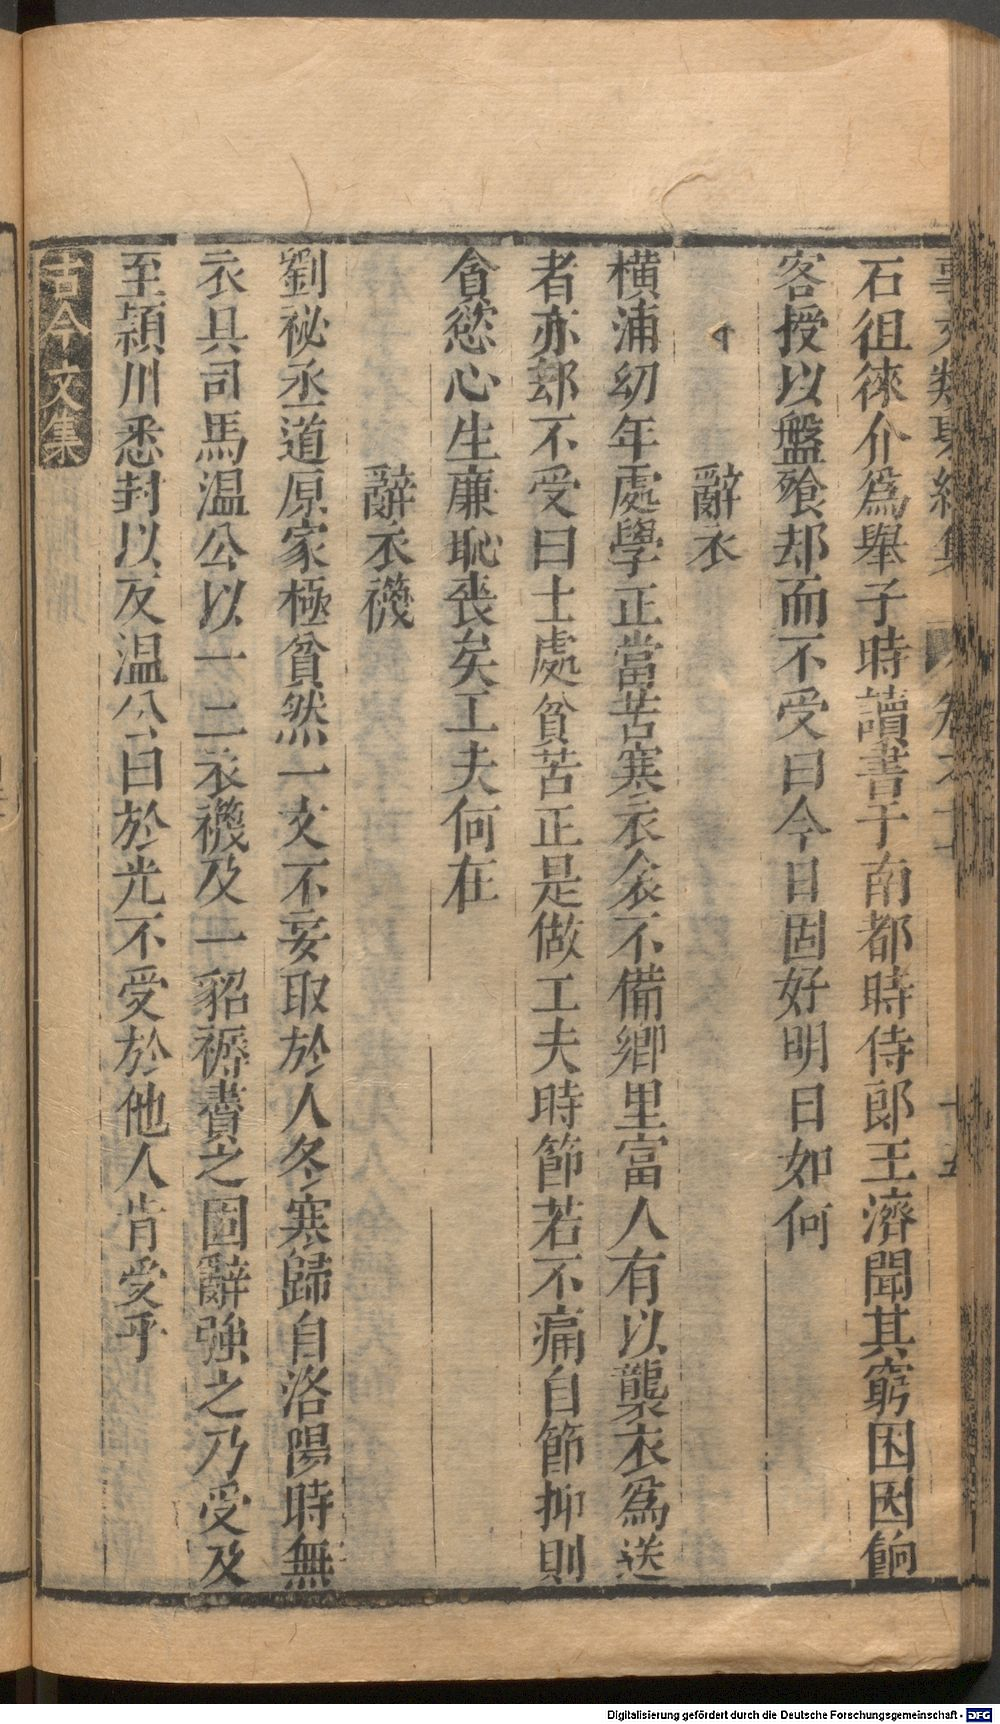 石徂徠介爲舉子時讀書于南都時侍郎王濟聞其窮困因餉
客授以盤飱却而不受曰今日固好明日如何
辭衣
橫浦幼年處學正當苦寒衣衾不備鄉里富人有以襲衣爲送
者亦郄不受曰士處貧苦正是做工夫時節若不痛自節抑則
貪慾心生廉恥喪矣工夫何在
辭衣襪
劉祕丞道原家極貧然一文不妄取於人冬寒歸自洛陽時無
衣具司馬温公以一二衣襪及一貂褥賮之固辭強之乃受及
至穎川悉封以反温公曰於光不受於他人肯受乎
古今文集
Digitalisierung gefördert durch die Deutsche Forschungsgemeinschaft - DFG